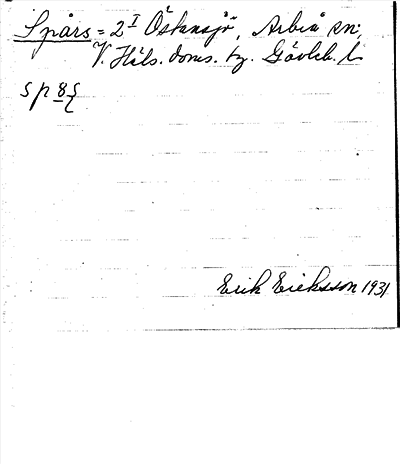 Spårs = 2 I Östansjö, Arbrå sn,
V. Häls. doms. tg. Gävleb. l.
sp8s
Erik Eriksson 1931